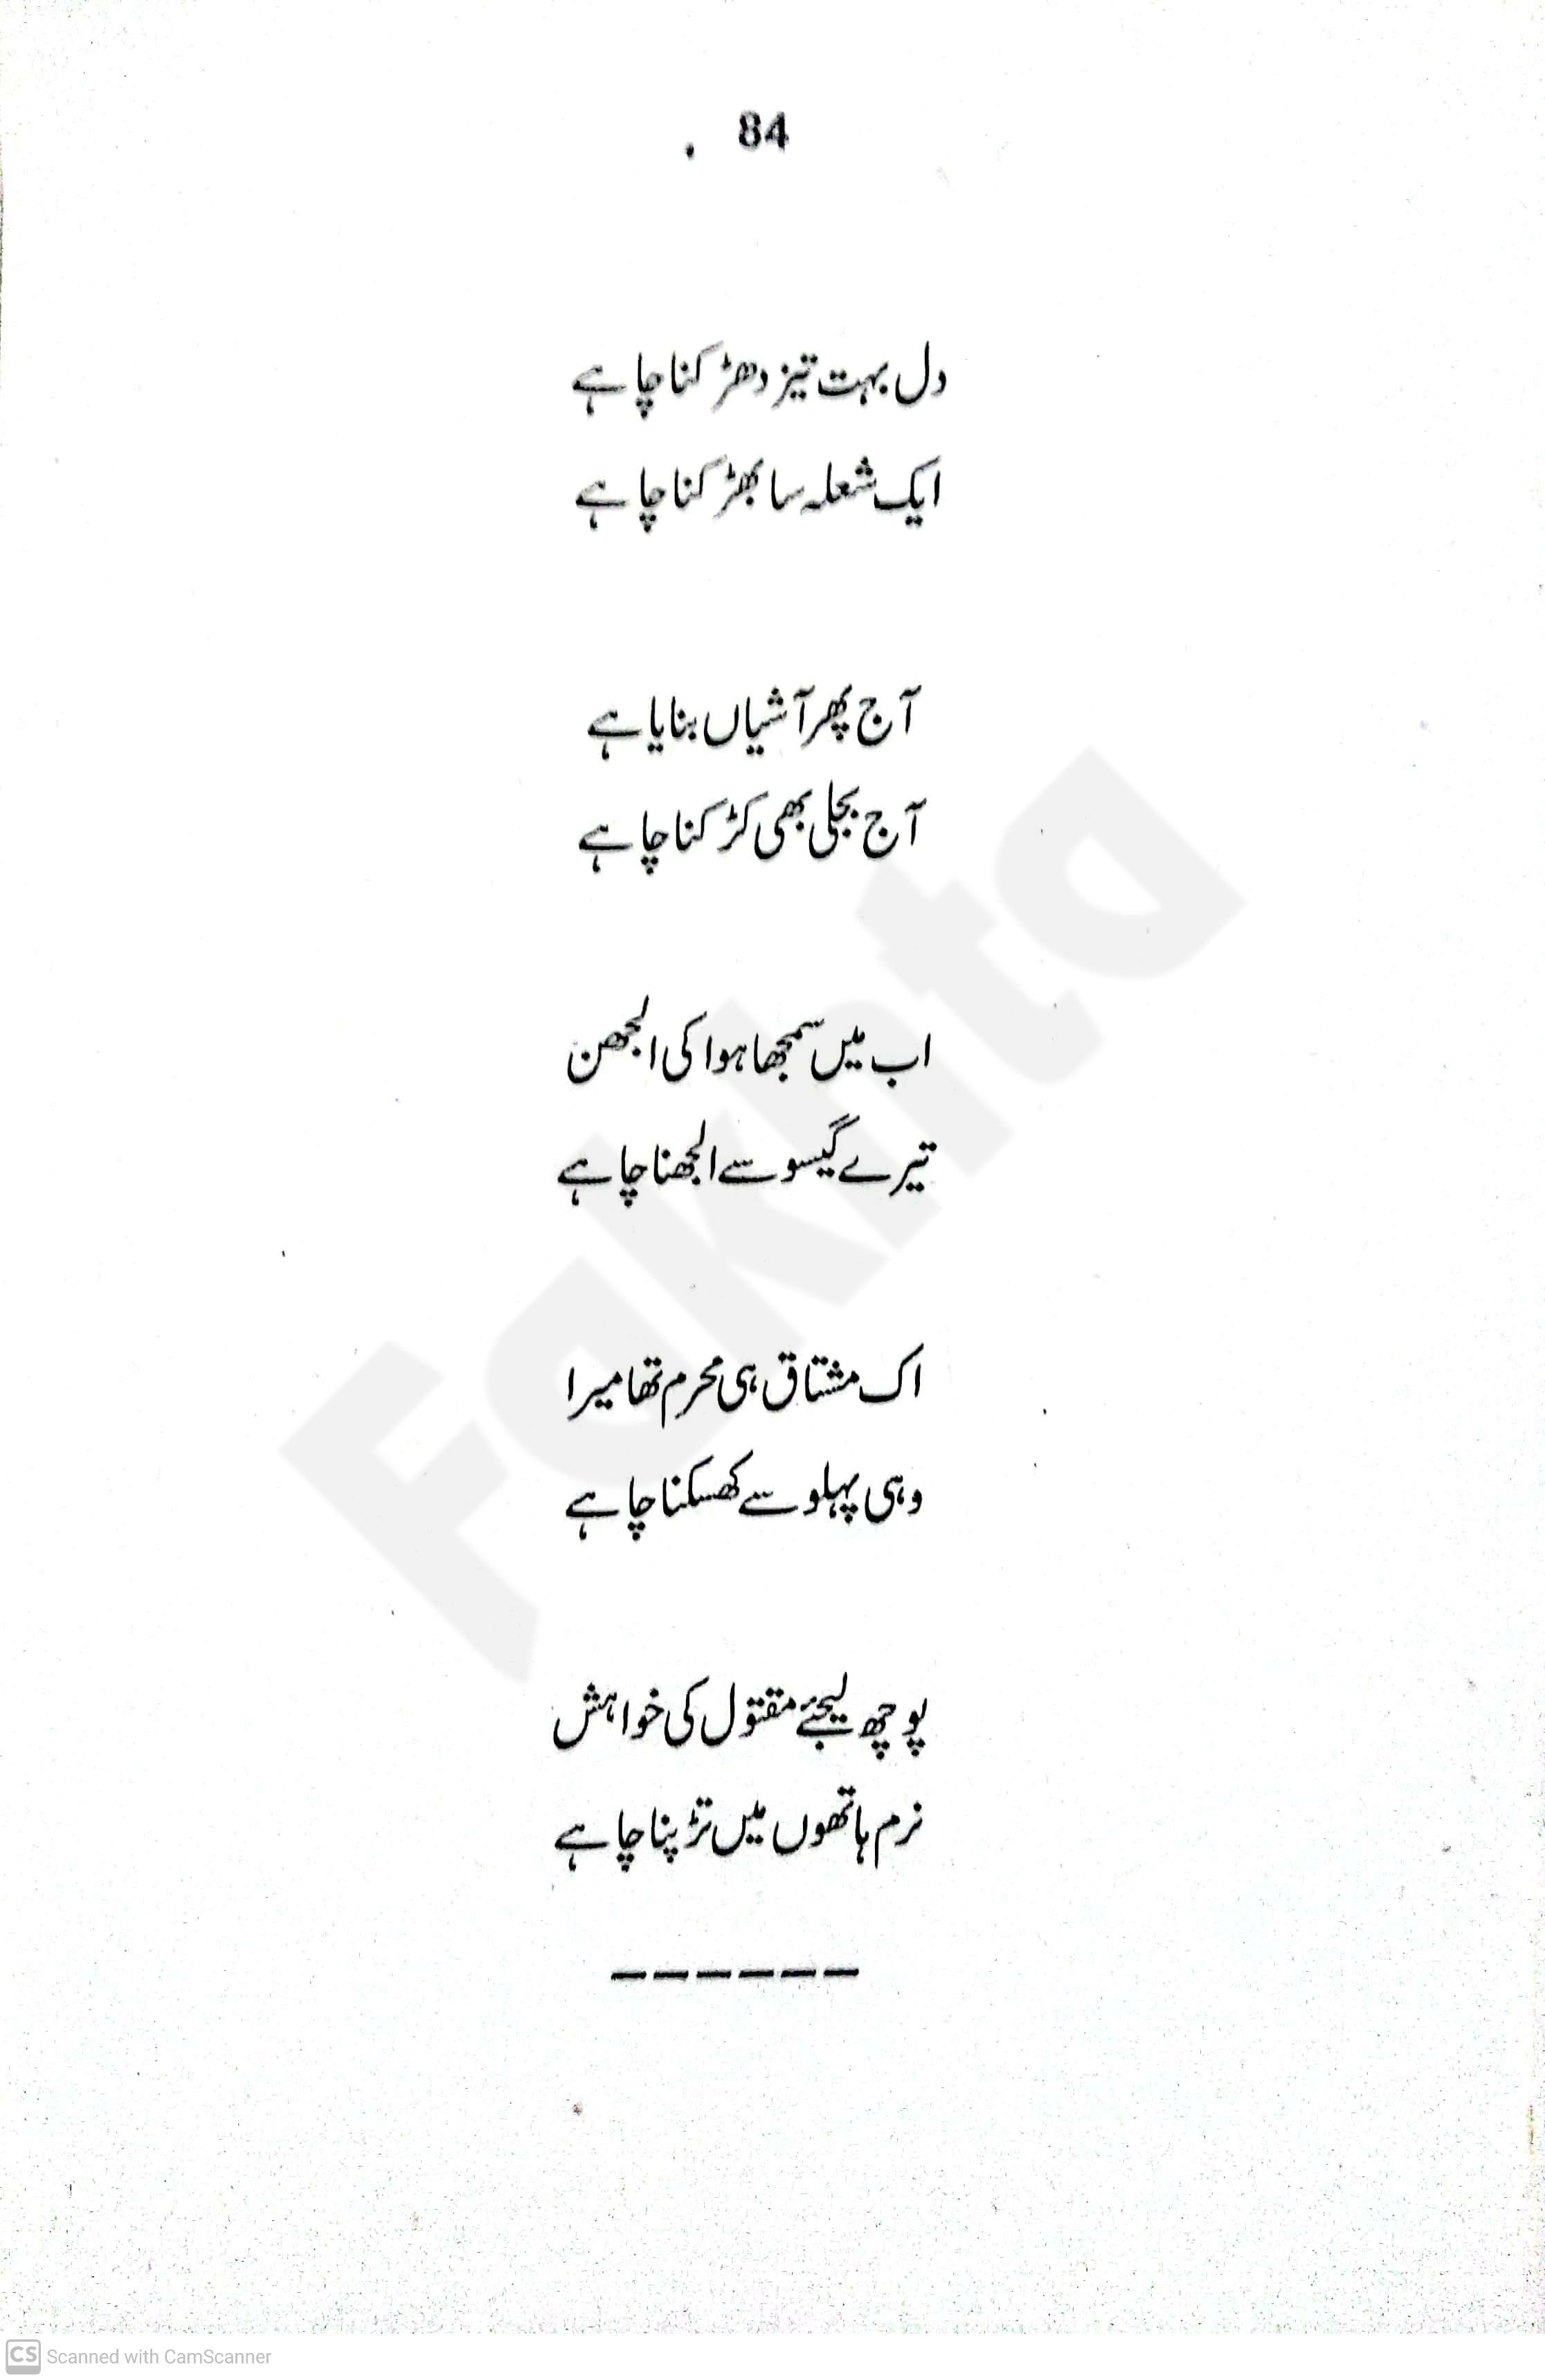 84
دل بہت تیز دھڑکنا چاہے
ایک شعلہ سا بھڑکنا چاہے
آج پھر آشیاں بنایا ہے
آج بجلی بھی کڑکنا چاہے
اب میں سمجھا ہوا کی الجھن
تیرے گیسو سے الجھنا چاہے
اک مشتاق ہی محرم تھا میرا
وہی پہلو سے کھسکنا چاہے
پوچھ لیجئے مقتول کی خواہش
نرم ہاتھوں میں تڑپنا چاہے
------
Fakhta
CS Scanned with CamScanner